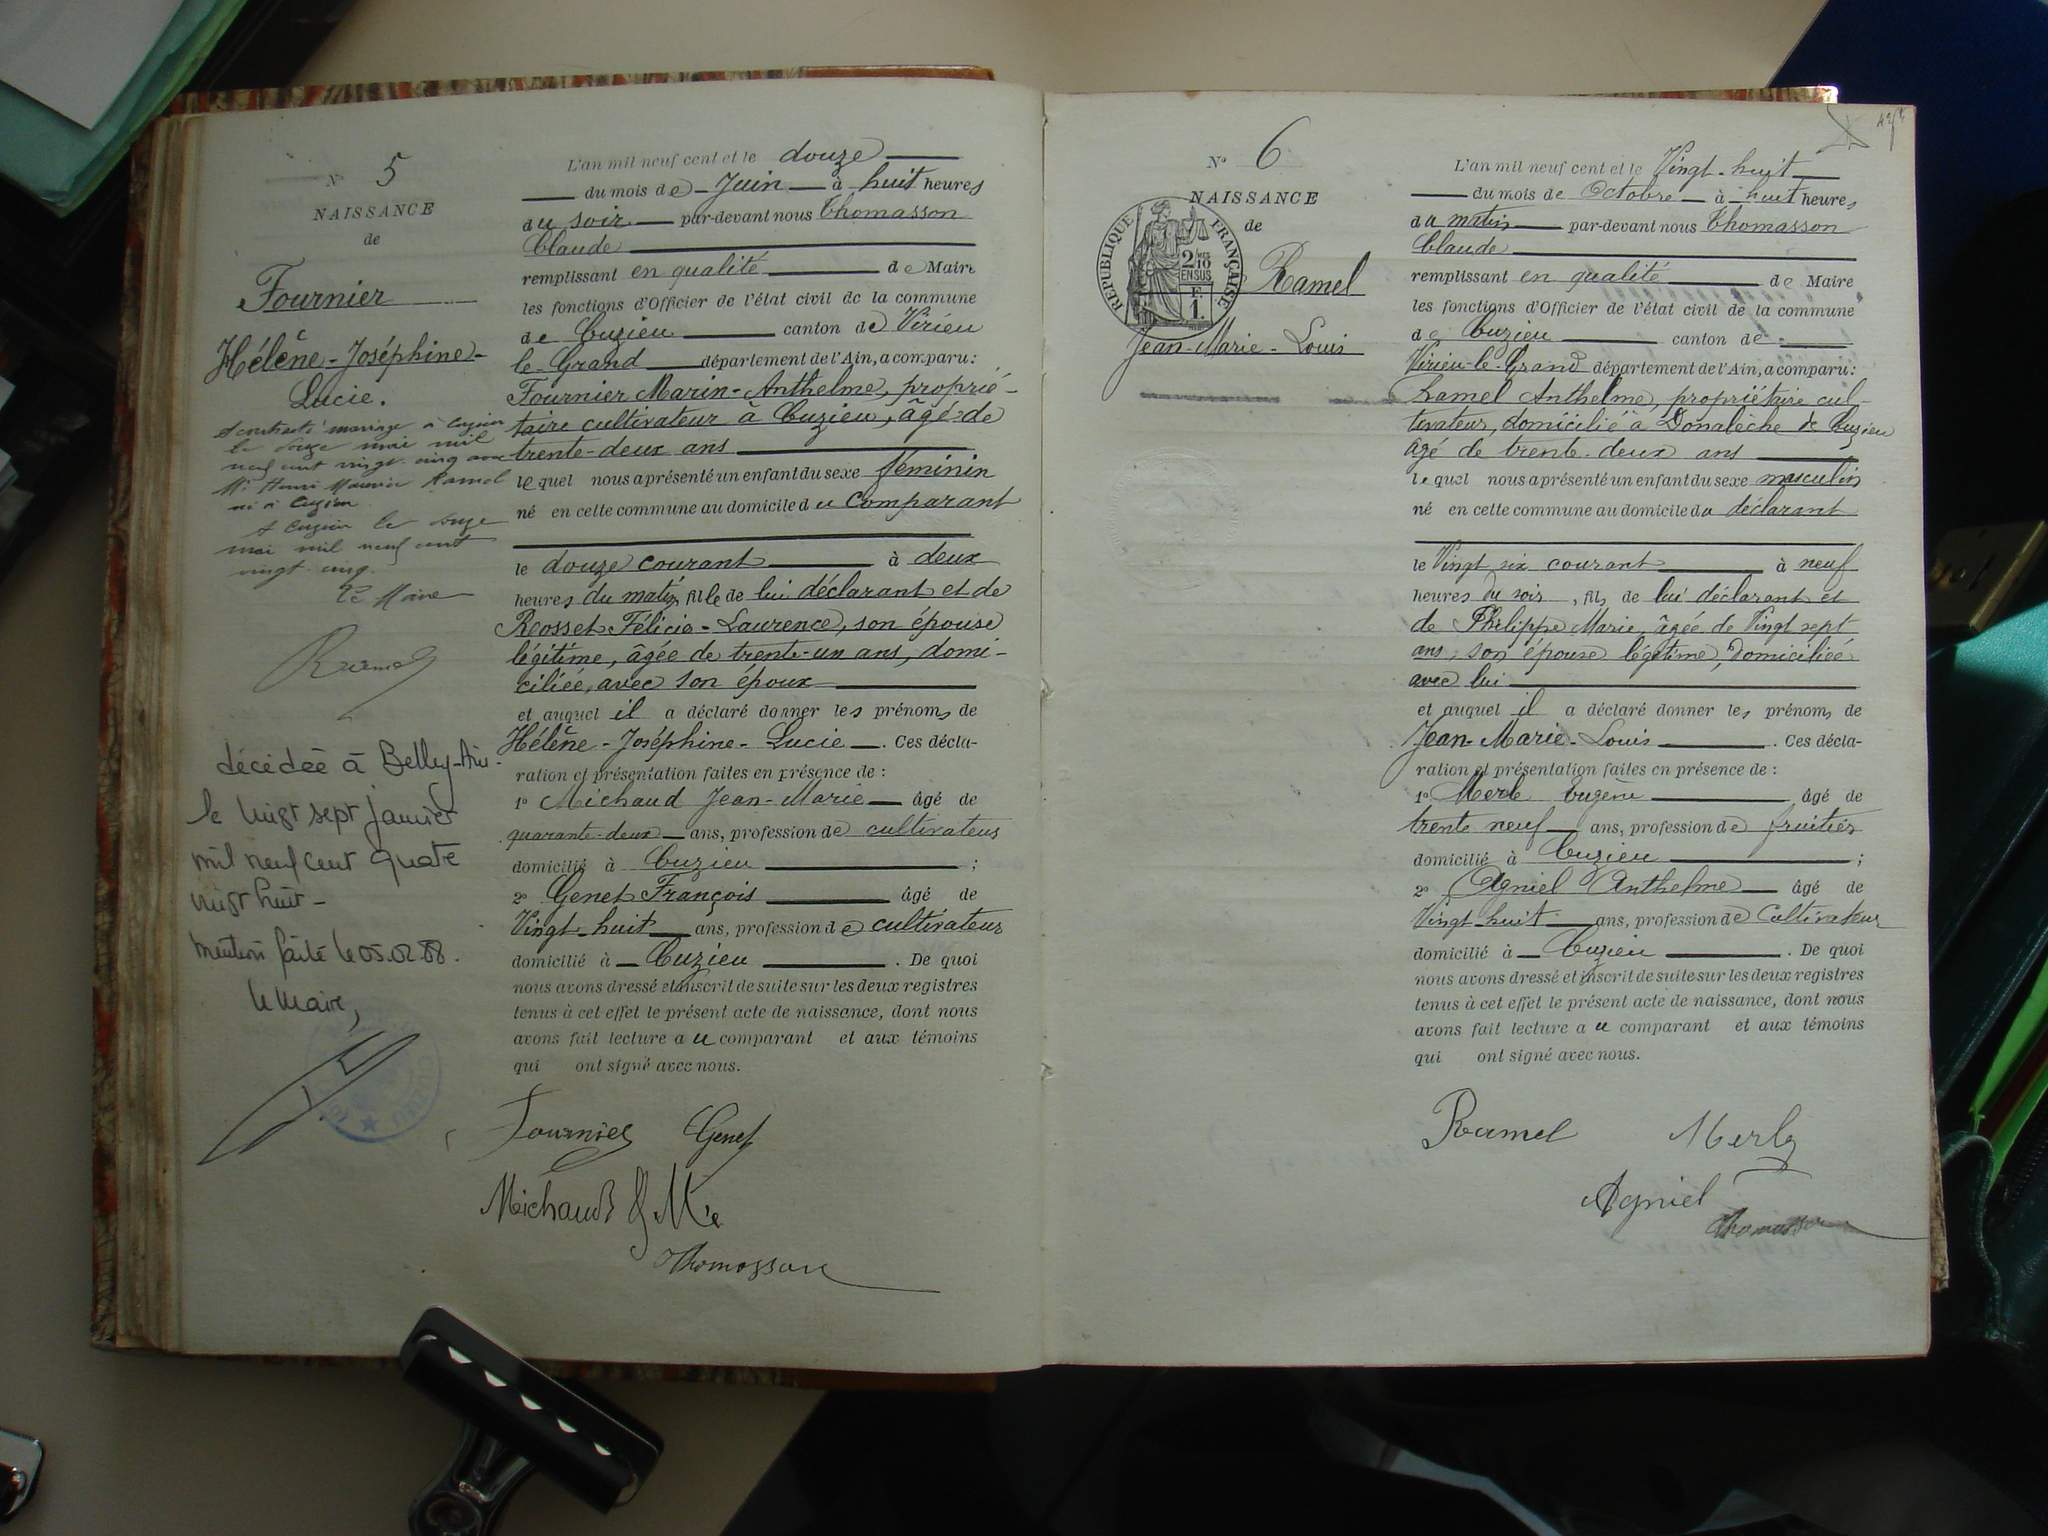 N° 5
NAISSANCE
de
Fournier
Hélène-Joséphine-
Lucie.
A contracté mariage à Cuzieu
le douze mai mil
neuf cent vingt-cinq avec
Mr Henri Maurice Ramel
né à Cuzieu
A Cuzieu le douze
mai mil neuf cent
vingt-cinq.
Le Maire
décédée à Belley-Ain-
le vingt sept janvier
mil neuf cent quatre
vingt huit -
mention faite le 05.02.88.
le Maire,
L'an mil neuf cent et le douze
du mois de Juin à huit heures
du soir par-devant nous Thomasson
Claude
remplissant en qualité de Maire
les fonctions d'Officier de l'état civil de la commune
de Cuzieu canton de Virieu
le-Grand département de l'Ain, a comparu:
Fournier Marin-Anthelme, proprié-
taire cultivateur à Cuzieu, âgé de
trente-deux ans
lequel nous a présenté un enfant du sexe féminin
né en cette commune au domicile du Comparant
le douze courant à deux
heures du matin, fille de lui déclarant et de
Rosset Félicie-Laurence, son épouse
légitime, âgée de trente-un ans, domi-
ciliée, avec son époux
et auquel il a déclaré donner les prénoms de
Hélène-Joséphine-Lucie. Ces décla-
ration et présentation faites en présence de :
1° Michaud Jean-Marie âgé de
quarante-deux ans, profession de cultivateur
domicilié à Cuzieu ;
2° Genet François âgé de
Vingt-huit ans, profession de cultivateur
domicilié à Cuzieu . De quoi
nous avons dressé et inscrit de suite sur les deux registres
tenus à cet effet le présent acte de naissance, dont nous
avons fait lecture au comparant et aux témoins
qui ont signé avec nous.
Fournier Genet
Michaud J Mie
Thomasson
N° 6
NAISSANCE
de
REPUBLIQUE FRANÇAISE
2/10
EN SUS
F.
1.
Ramel
Jean-Marie-Louis
L'an mil neuf cent et le Vingt-huit
du mois de Octobre à huit heures
du matin par-devant nous Thomasson
Claude
remplissant en qualité de Maire
les fonctions d'Officier de l'état civil de la commune
de Cuzieu canton de
Virieu-le-Grand département de l'Ain, a comparu:
Ramel Anthelme, propriétaire cul-
tivateur, domicilié à Donalèche de Cuzieu
âgé de trente-deux ans
lequel nous a présenté un enfant du sexe masculin
né en cette commune au domicile du déclarant
le Vingt six courant à neuf
heures du soir, fils de lui déclarant et
de Philippe Marie, âgée de Vingt sept
ans, son épouse légitime, domiciliée
avec lui
et auquel il a déclaré donner les prénoms de
Jean-Marie-Louis . Ces décla-
ration et présentation faites en présence de :
1° Merle Eugène âgé de
trente neuf ans, profession de fruitier
domicilié à Cuzieu ;
2° Agniel Anthelme âgé de
Vingt-huit ans, profession de Cultivateur
domicilié à Cuzieu . De quoi
nous avons dressé et inscrit de suite sur les deux registres
tenus à cet effet le présent acte de naissance, dont nous
avons fait lecture au comparant et aux témoins
qui ont signé avec nous.
Ramel Merle
Agniel
Thomasson